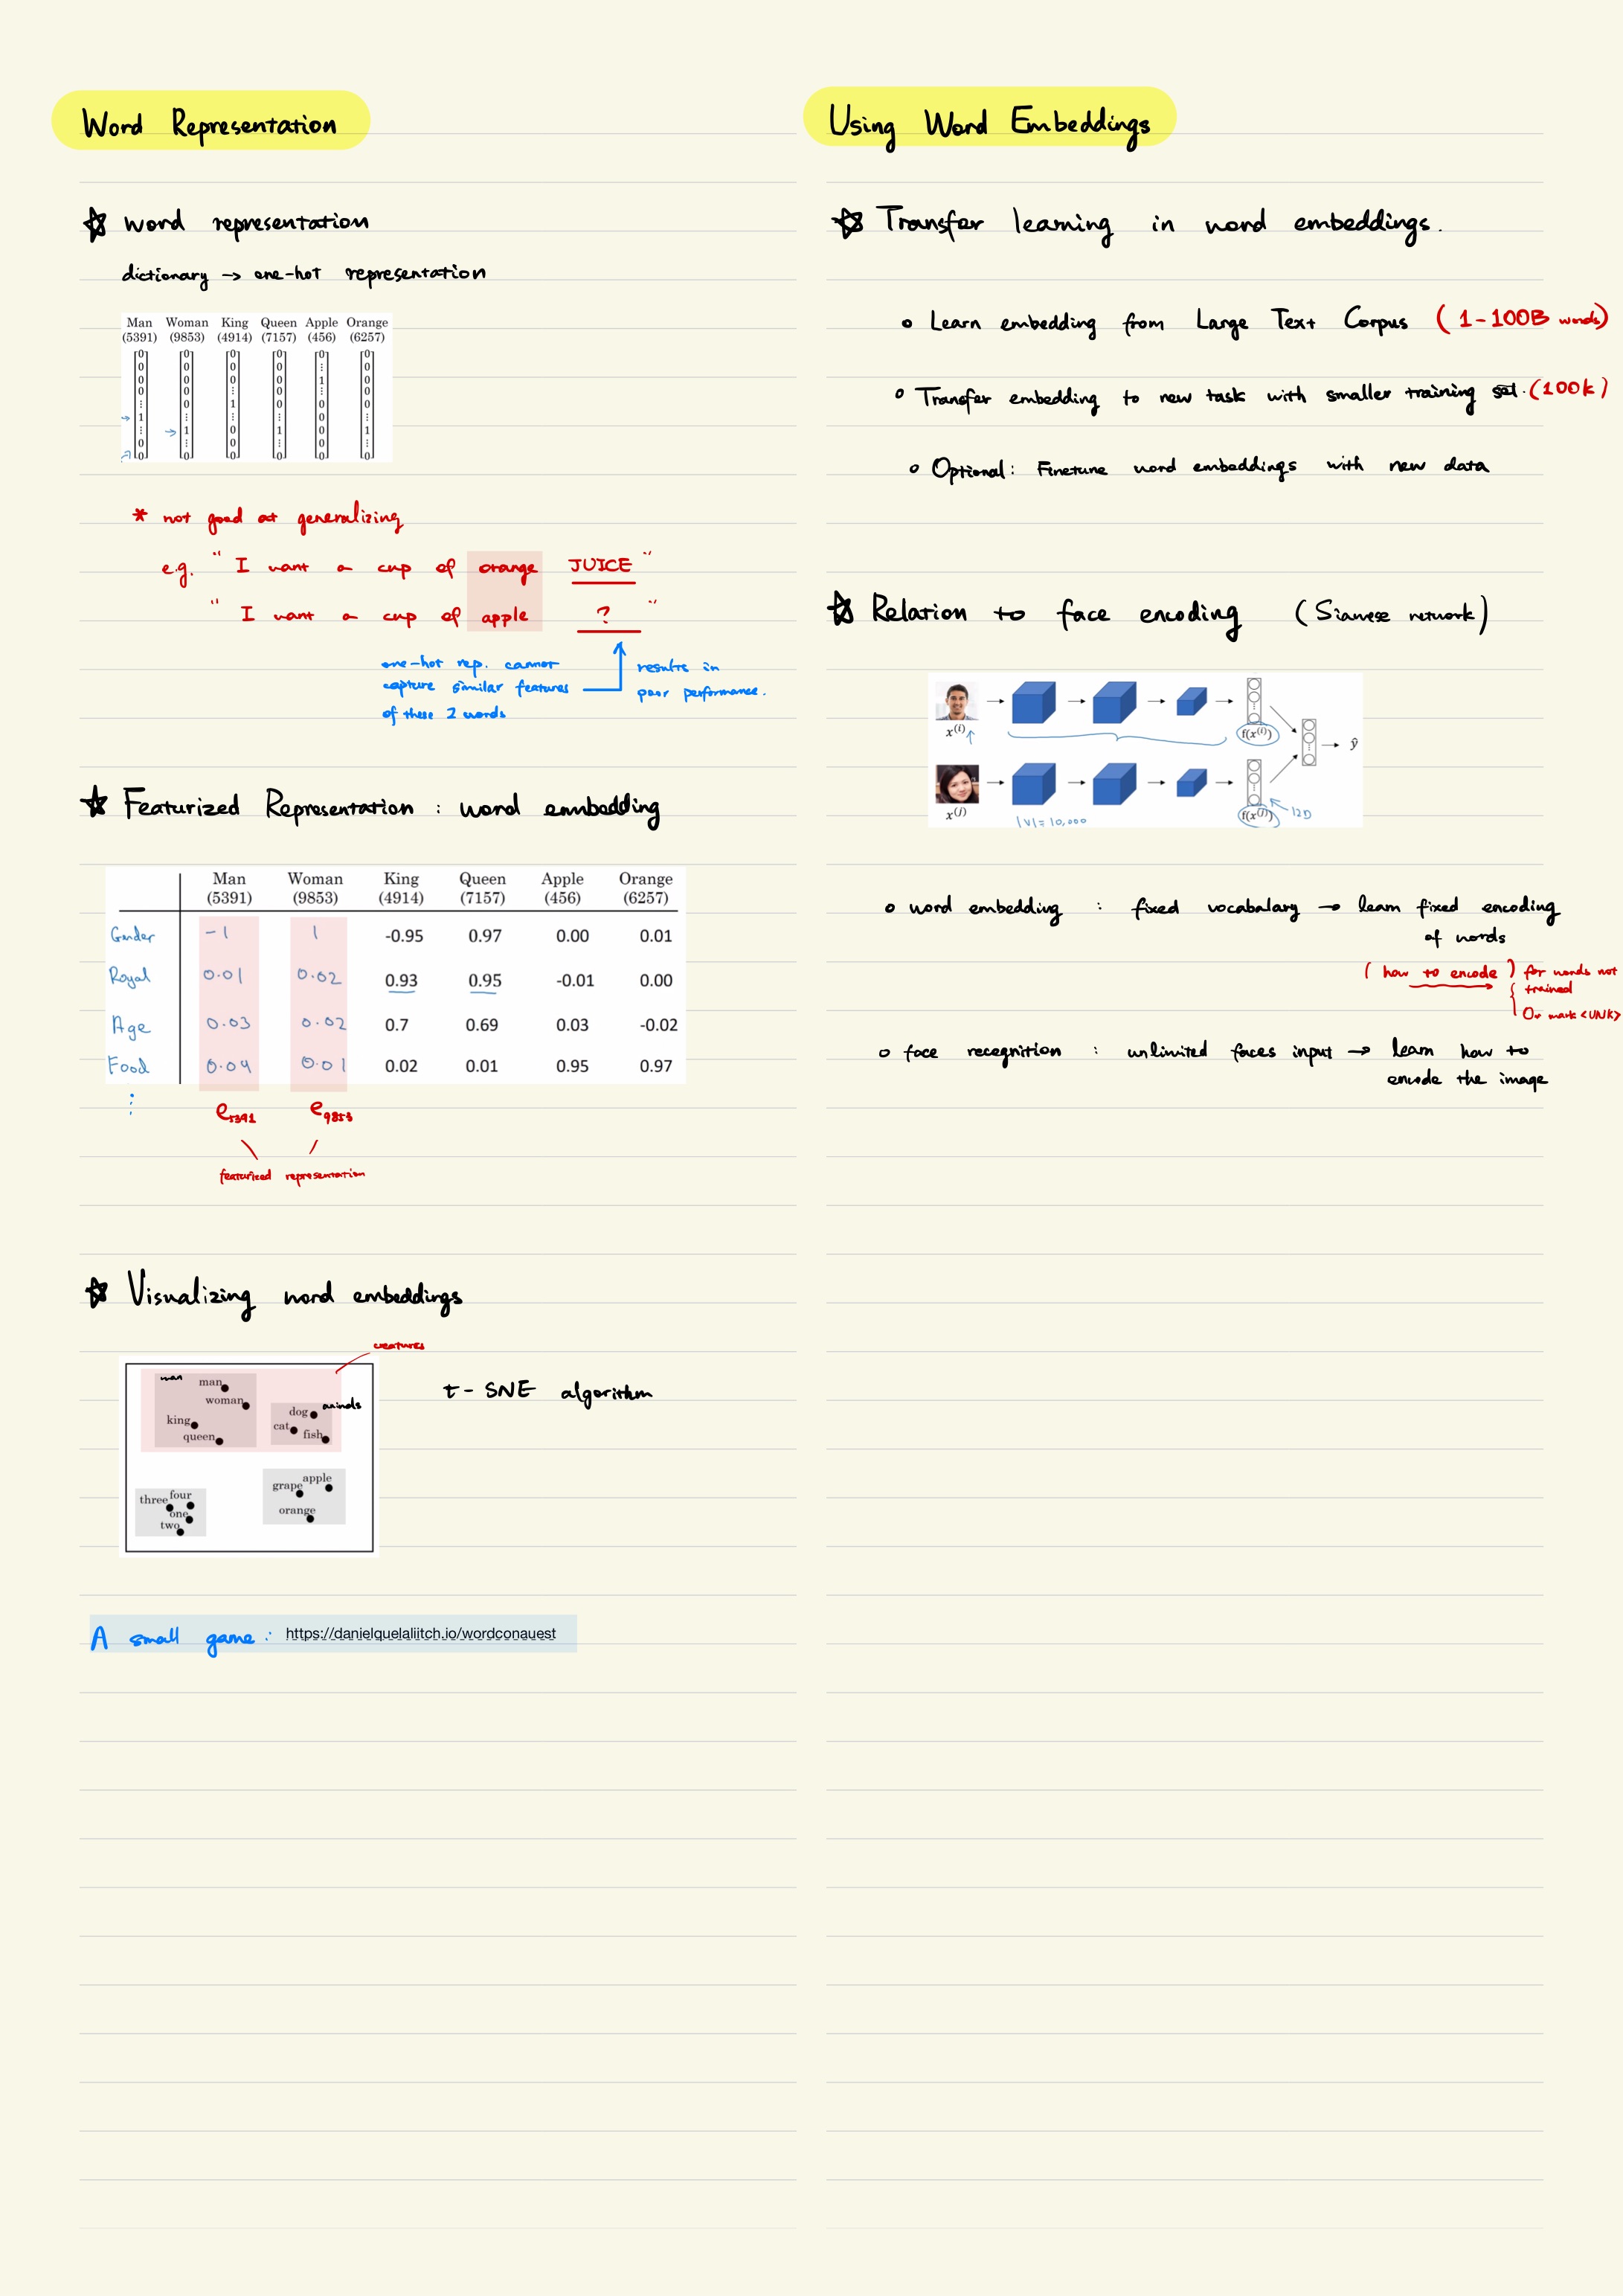 Word Representation
☆ word representation
dictionary → one-hot representation
Man Woman King Queen Apple Orange
(5391) (9853) (4914) (7157) (456) (6257)
0 0 0 0 0 0
0 0 0 0 ⋮ 0
0 0 0 0 1 0
0 0 ⋮ 0 ⋮ 0
⋮ 0 1 0 0 0
→ 1 ⋮ ⋮ ⋮ 0 ⋮
⋮ → 1 0 1 0 1
0 ⋮ 0 ⋮ 0 ⋮
0 0 0 0 0 0
* not good at generalizing
e.g. " I want a cup of orange JUICE "
" I want a cup of apple ? "
one-hot rep. cannot
capture similar features
of these 2 words
results in
poor performance.
☆ Featurized Representation : word embedding
Man Woman King Queen Apple Orange
(5391) (9853) (4914) (7157) (456) (6257)
Gender -1 1 -0.95 0.97 0.00 0.01
Royal 0.01 0.02 0.93 0.95 -0.01 0.00
Age 0.03 0.02 0.7 0.69 0.03 -0.02
Food 0.04 0.01 0.02 0.01 0.95 0.97
⋮
e5391 e9853
featurized representation
☆ Visualizing word embeddings
creatures
man
man
woman
king
queen
dog
animals
cat
fish
four
three
one
two
apple
grape
orange
t-SNE algorithm
A small game: https://danielquelaliitch.io/wordconauest
Using Word Embeddings
☆ Transfer learning in word embeddings.
o Learn embedding from Large Text Corpus (1-100B words)
o Transfer embedding to new task with smaller training set. (100k)
o Optional: Finetune word embeddings with new data
☆ Relation to face encoding (Siamese network)
x(i)
f(x(i))
ŷ
x(j)
f(x(j))
|V|=10,000
o word embedding : fixed vocabalary → learn fixed encoding
of words
( how to encode ) for words not
trained
Or mark <UNK>
o face recognition : unlimited faces input → learn how to
encode the image